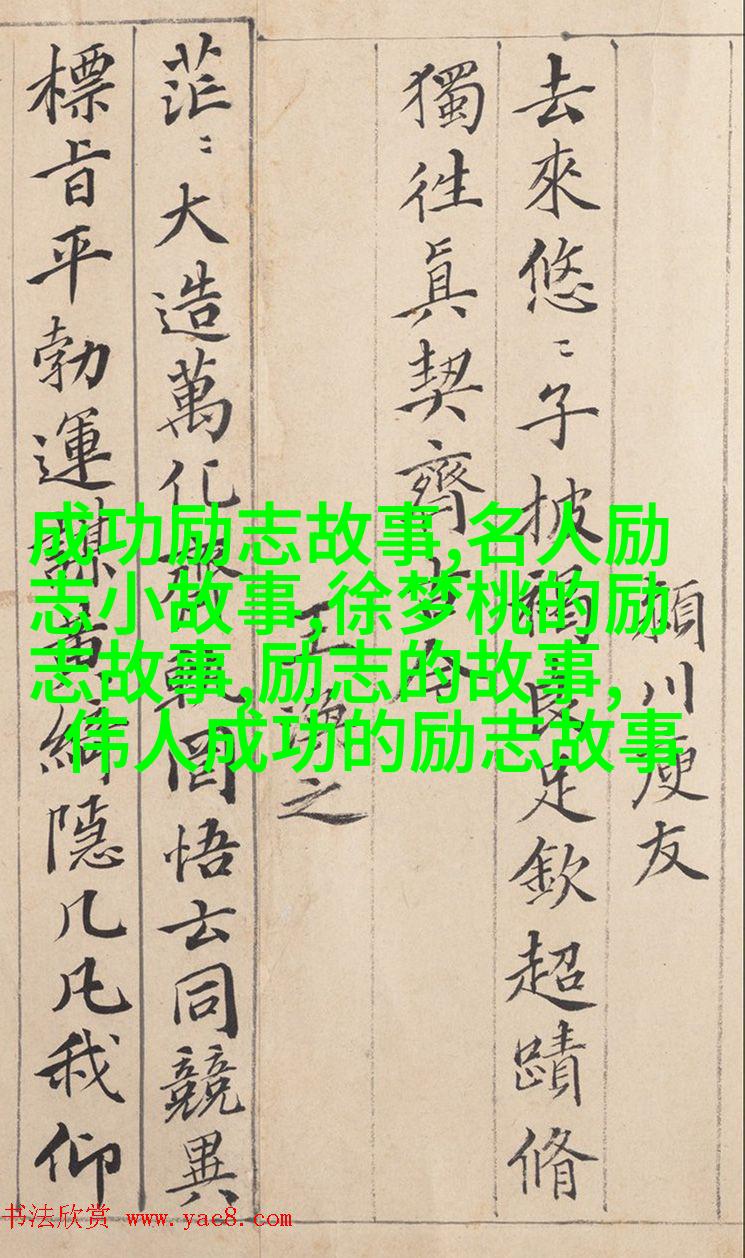 成功励志故事,名人励
志小故事,徐梦桃的励
志故事,励志的故事,
伟人成功的励志故事
川庾友
去來悠〻子披褐良足欽超蹟脩
獨往眞契齊古今
王渙之
茫〻大造萬化齊軌罔悟玄同競異
標旨平勃運謀黃綺隱几凡我仰
书法欣赏 www.yac8.com